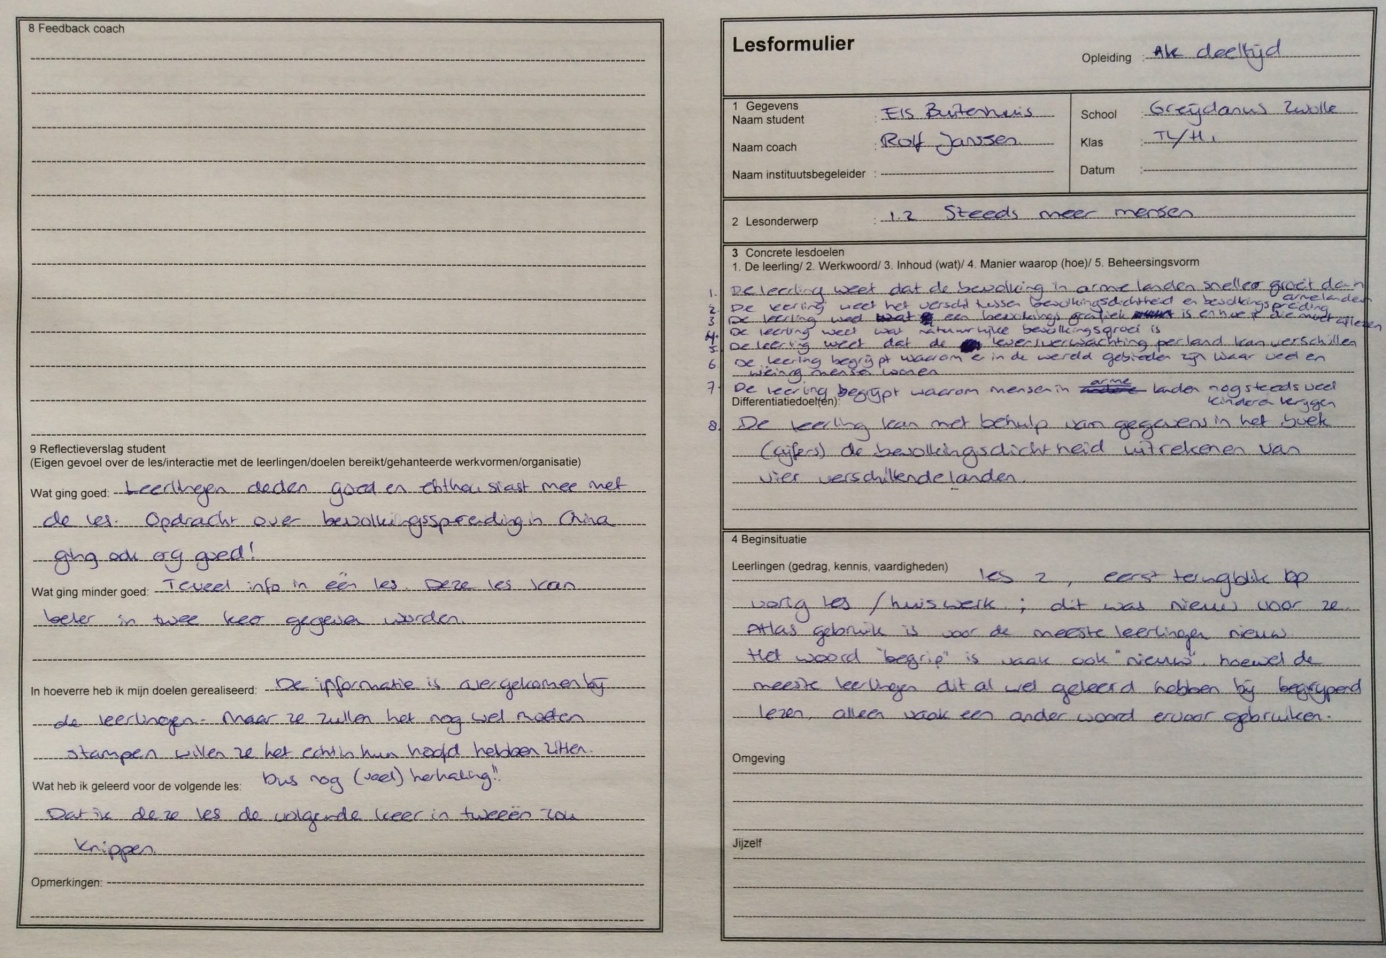 8 Feedback coach
9 Reflectieverslag student
(Eigen gevoel over de les/interactie met de leerlingen/doelen bereikt/gehanteerde werkvormen/organisatie)
Wat ging goed: Leerlingen deden goed en enthousiast mee met
de les. Opdracht over bevolkingsspreiding in China
ging ook erg goed!
Wat ging minder goed: Teveel info in één les. Deze les kan
beter in twee keer gegeven worden.
In hoeverre heb ik mijn doelen gerealiseerd: De informatie is overgekomen bij
de leerlingen. Maar ze zullen het nog wel moeten
stampen willen ze het echt in hun hoofd hebben zitten.
Dus nog (veel) herhaling!!
Wat heb ik geleerd voor de volgende les:
Dat ik deze les de volgende keer in tweeën zou
knippen.
Opmerkingen:
Lesformulier
Opleiding : Ak deeltijd
1 Gegevens
Naam student : Els Buitenhuis
Naam coach : Rolf Janssen
Naam instituutsbegeleider :
School : Greijdanus Zwolle
Klas : TL/H1
Datum :
2 Lesonderwerp : 1.2 Steeds meer mensen
3 Concrete lesdoelen
1. De leerling/ 2. Werkwoord/ 3. Inhoud (wat)/ 4. Manier waarop (hoe)/ 5. Beheersingsvorm
1. De leerling weet dat de bevolking in arme landen sneller groeit dan
2 De leerling weet het verschil tussen bevolkingsdichtheid en bevolkingsspreiding
3 De leerling weet wat een bevolkings grafiek is en hoe je die moet aflezen
4. De leerling weet wat natuurlijke bevolkingsgroei is
5 De leerling weet dat de levensverwachting per land kan verschillen
6 De leerling begrijpt waarom er in de wereld gebieden zijn waar veel en
weinig mensen wonen
7 De leerling begrijpt waarom mensen in arme landen nog steeds veel
kinderen krijgen
Differentiatiedoel(en):
8. De leerling kan met behulp van gegevens in het boek
(cijfers) de bevolkingsdichtheid uitrekenen van
vier verschillende landen.
4 Beginsituatie
Leerlingen (gedrag, kennis, vaardigheden) les 2, eerst terugblik op
vorig les / huiswerk ; dit was nieuw voor ze.
Atlas gebruik is voor de meeste leerlingen nieuw.
Het woord "begrip" is vaak ook "nieuw", hoewel de
meeste leerlingen dit al wel geleerd hebben bij begrijpend
lezen, alleen vaak een ander woord ervoor gebruiken.
Omgeving
Jijzelf